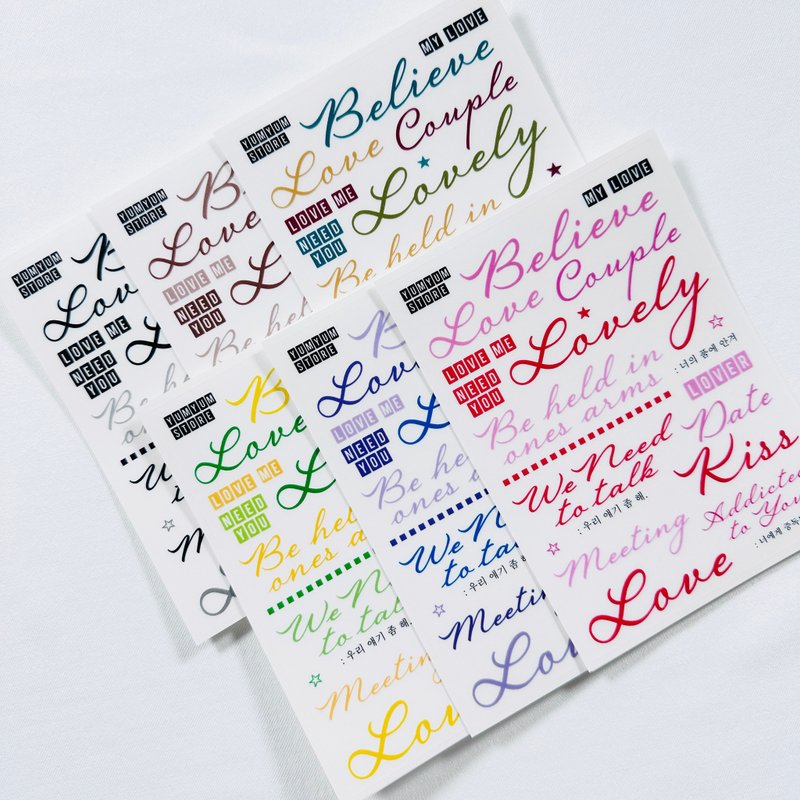 MY LOVE
YUMYUM
STORE
Believe
Love Couple
LOVE ME
NEED
YOU
Lovely
Be held in
YUMYUM
STORE
Love
LOVE ME
NEED
YOU
Be held
YUMYUM
STORE
LOVE ME
NEED
YOU
Be
ones
MY LOVE
YUMYUM
STORE
Believe
Love Couple
LOVE ME
NEED
YOU
Lovely
: 너의 품에 안겨
Be held in
ones arms
LOVER
Date
We Need
to talk
Kiss
: 우리 얘기 좀 해.
Meeting
Addicted
to You
: 너에게 중독
Love
YUMYUM
STORE
Love
LOVE ME
NEED
YOU
Be held
ones
We
to talk
: 우리 얘기 좀 해
Meeting
YUMYUM
STORE
Love
LOVE ME
NEED
YOU
Be held
ones
We
to talk
: 우리 얘기 좀 해.
Meeting